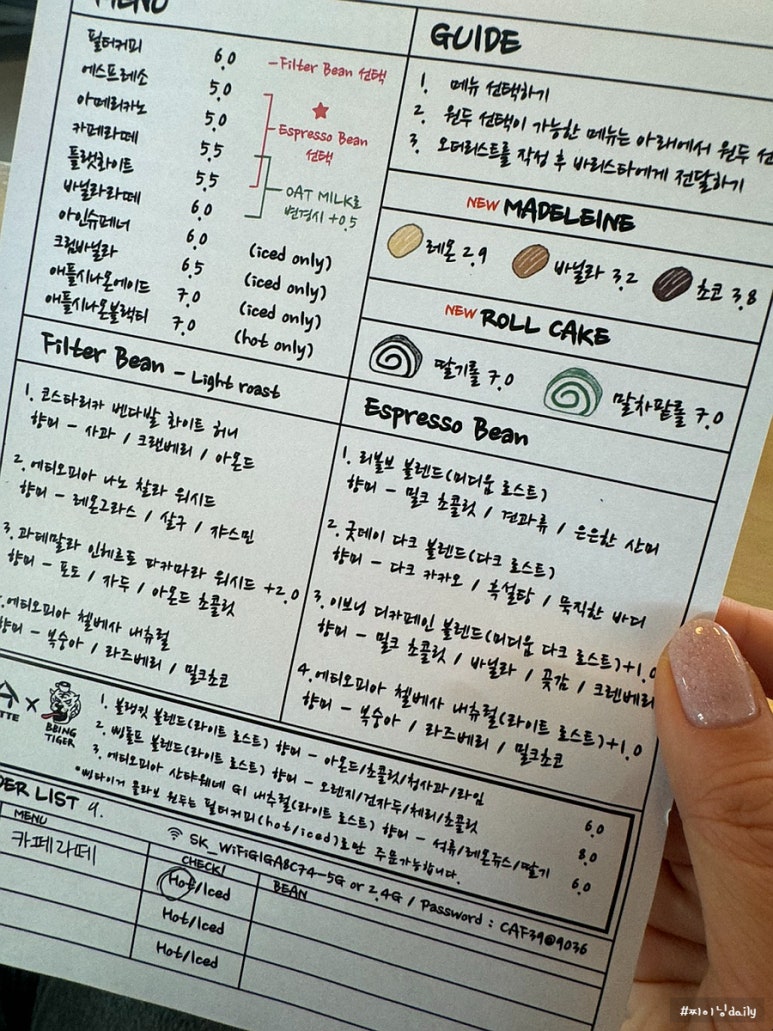 MENU
필터커피 6.0 -Filter Bean 선택
에스프레소 5.0
아메리카노 5.0
카페라떼 5.5
플랫화이트 5.5
바닐라라떼 6.0
아인슈페너 6.0 (iced only)
크림바닐라 6.5 (iced only)
애플시나몬에이드 7.0 (iced only)
애플시나몬블랙티 7.0 (hot only)
★ Espresso Bean 선택
OAT MILK로 변경시 +0.5
GUIDE
1. 메뉴 선택하기
2. 원두 선택이 가능한 메뉴는 아래에서 원두 선
3. 오더리스트를 작성 후 바리스타에게 전달하기
NEW MADELEINE
레몬 2.9 바닐라 3.2 초코 3.8
NEW ROLL CAKE
딸기롤 7.0 말차팥롤 7.0
Filter Bean - Light roast
1. 코스타리카 벤다발 화이트 허니
향미 - 사과 / 크랜베리 / 아몬드
2. 에티오피아 나노 찰라 워시드
향미 - 레몬그라스 / 살구 / 쟈스민
3. 과테말라 인헤르토 파카마라 워시드 +2.0
향미 - 포도 / 자두 / 아몬드 초콜릿
에티오피아 첼베사 내츄럴
향미 - 복숭아 / 라즈베리 / 밀크초코
Espresso Bean
1. 리볼브 블렌드(미디움 로스트)
향미 - 밀크 초콜릿 / 견과류 / 은은한 산미
2. 굿데이 다크 블렌드(다크 로스트)
향미 - 다크 카카오 / 흑설탕 / 묵직한 바디
3. 이브닝 디카페인 블렌드(미디움 다크 로스트)+1.0
향미 - 밀크 초콜릿 / 바닐라 / 곶감 / 크랜베리
4. 에티오피아 첼베사 내츄럴(라이트 로스트)+1.0
향미 - 복숭아 / 라즈베리 / 밀크초코
TTE X BBING TIGER
1. 블랭킷 블렌드(라이트 로스트) 향미 - 아몬드/초콜릿/청사과/라임 6.0
2. 삥돌프 블렌드(라이트 로스트) 향미 - 오렌지/건자두/체리/초콜릿 8.0
3. 에티오피아 산타웨네 G1 내추럴(라이트 로스트) 향미 - 석류/레몬쥬스/딸기 6.0
*삥타이거 콜라보 원두는 필터커피(hot/iced)로만 주문가능합니다.
DER LIST 9.
SK_WiFiGIGA8C74-5G or 2.4G / Password : CAF39@9036
MENU CHECK! BEAN
카페라떼 Hot/Iced
Hot/Iced
Hot/Iced
#찌이닝daily